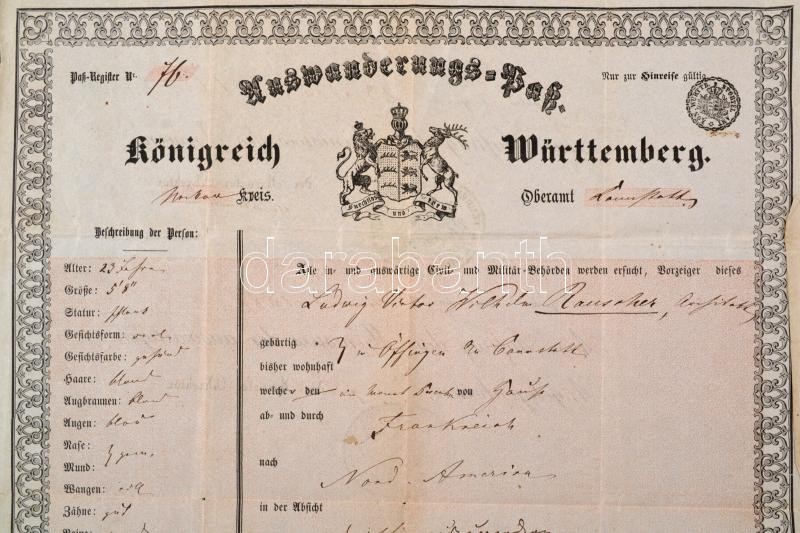 Paß-Register Nr. 76.
Auswanderungs-Paß.
Nur zur Hinreise gültig.
Königreich Württemberg.
Furchtlos und trew
Neckar Kreis.
Oberamt Cannstatt
Beschreibung der Person:
Alter: 23 Jahre
Größe: 5' 8"
Statur: schlank
Gesichtsform: oval
Gesichtsfarbe: gesund
Haare: blond
Augbraunen: blond
Augen: blau
Nase:
Mund:
Wangen:
Zähne: gut
Beine:
Alle in- und auswärtige Civil- und Militär-Behörden werden ersucht, Vorzeiger dieses
Ludwig Victor Wilhelm Rauscher, Architekt
gebürtig zu Öffingen
bisher wohnhaft
welcher den von Haus
ab- und durch
Frankreich
nach
Nord-America
in der Absicht
darabanth